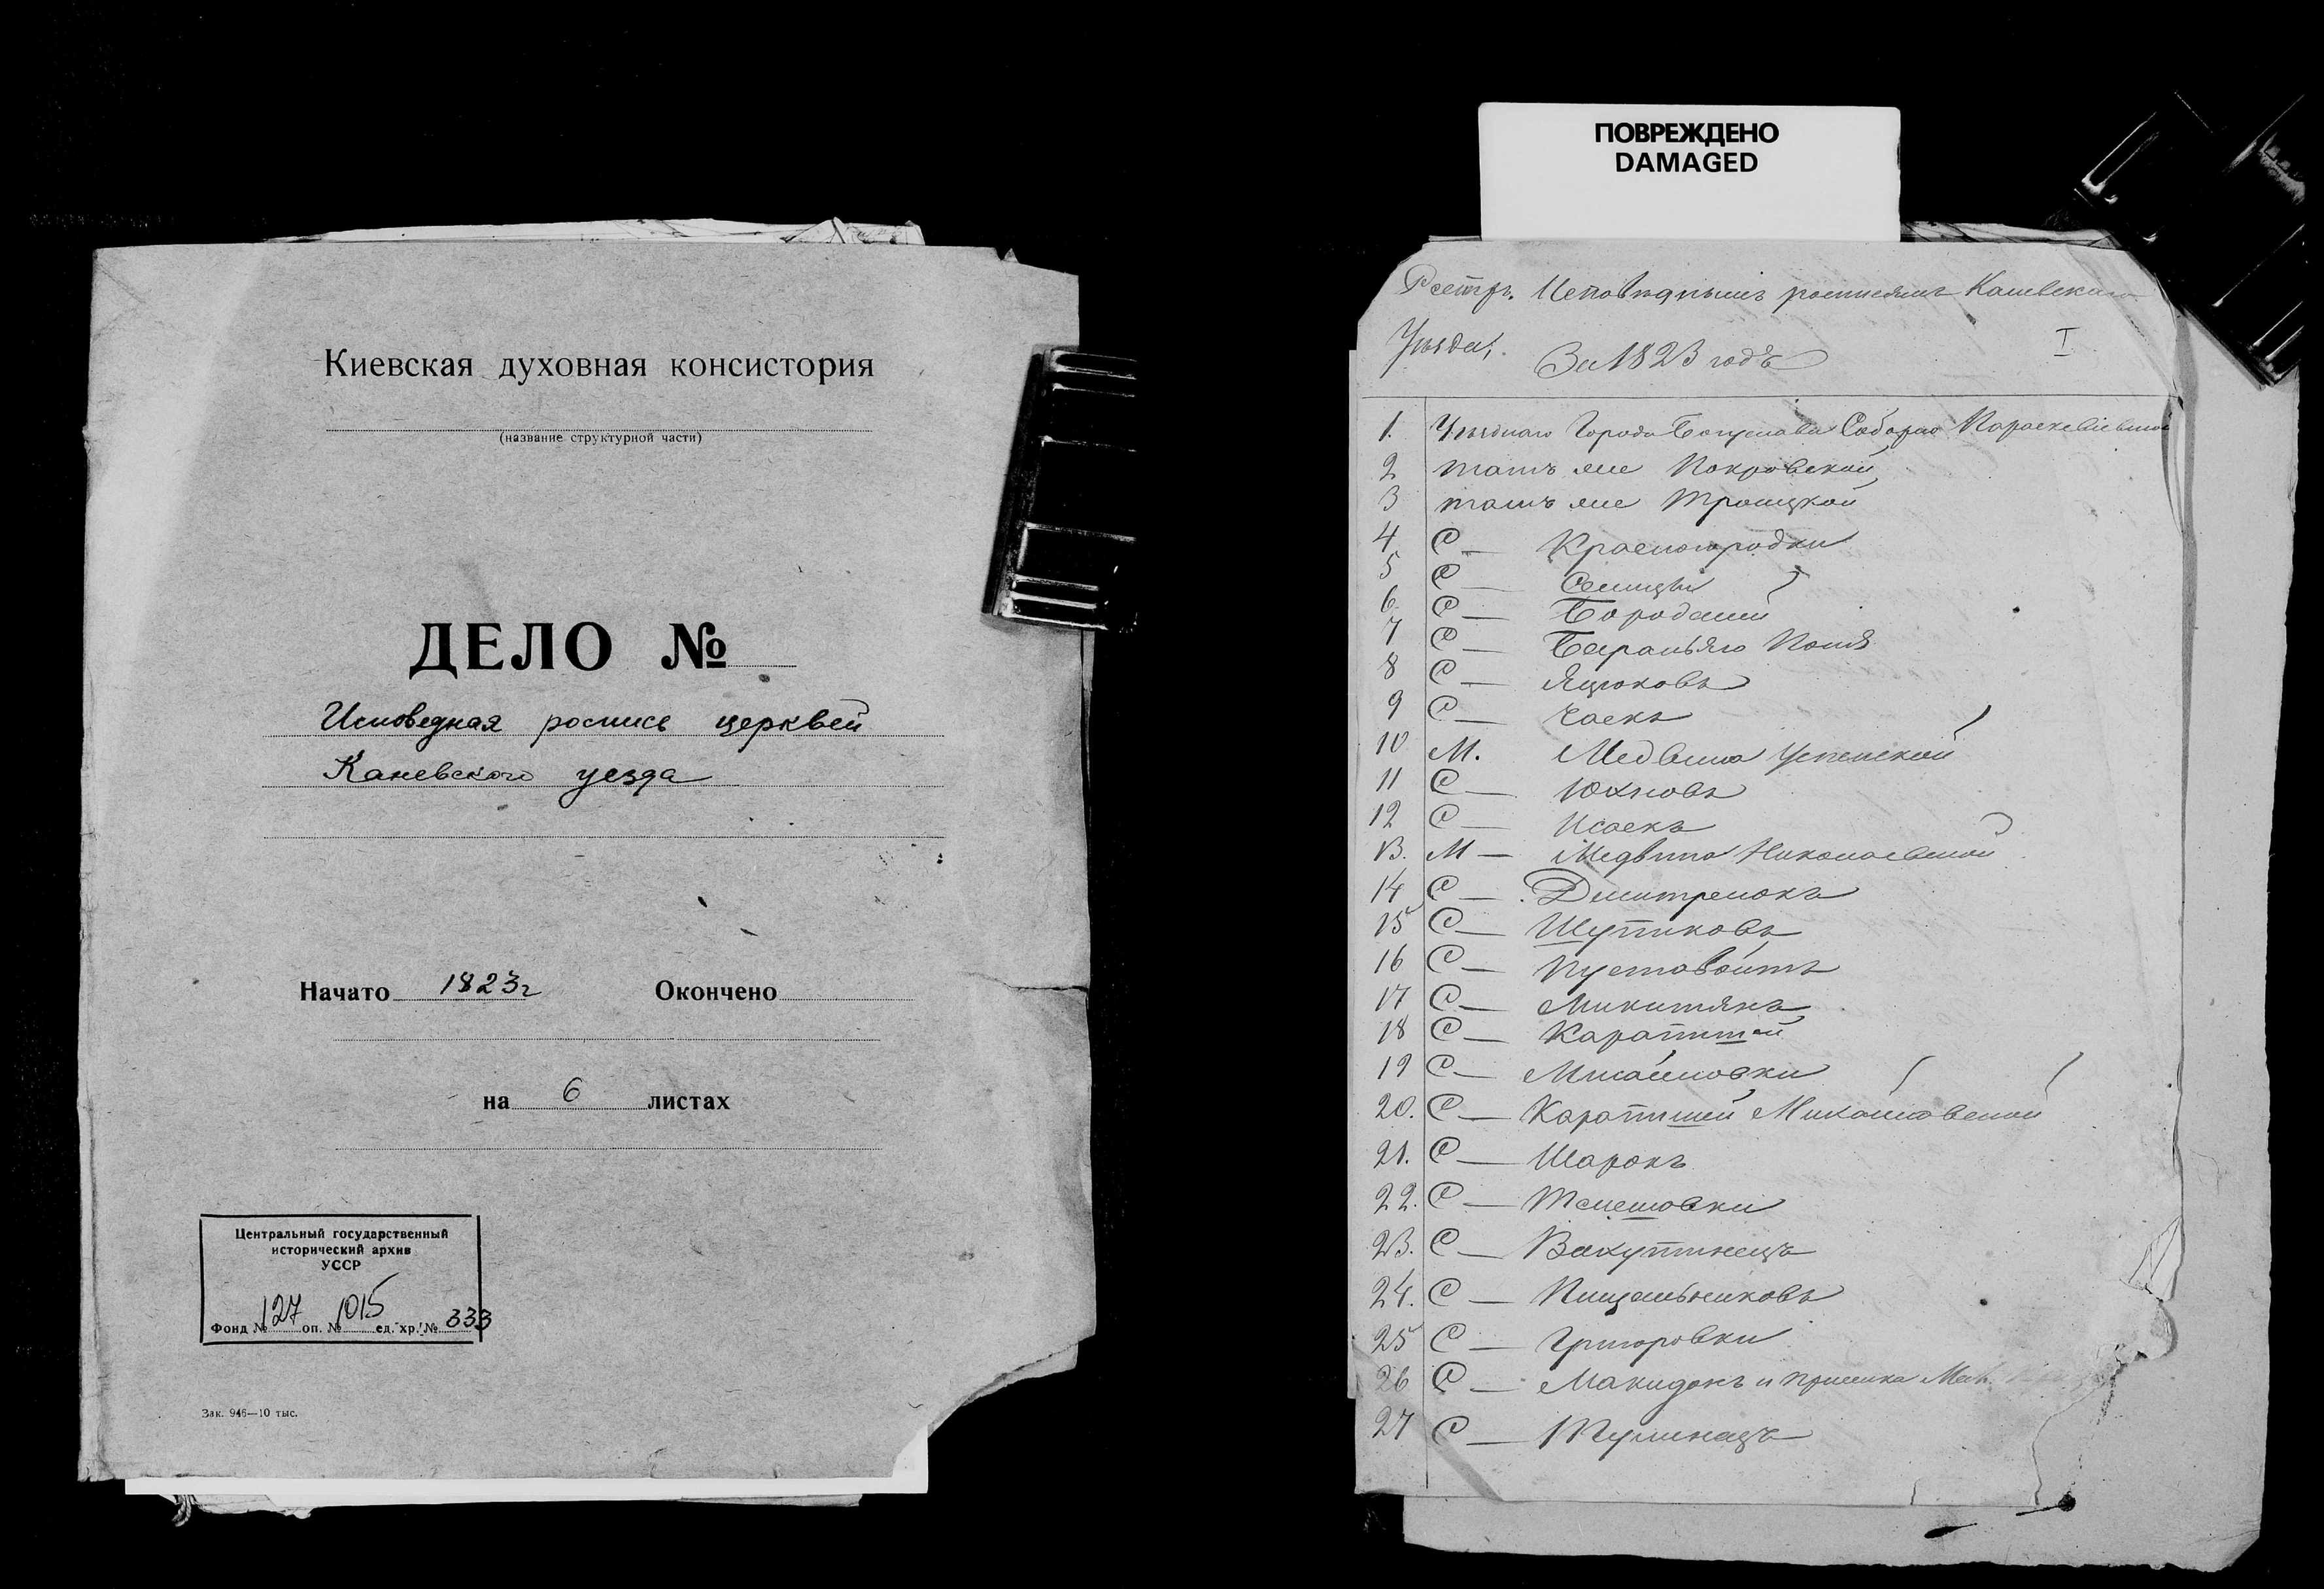 Киевская духовная консистория
(название структурной части)
ДЕЛО №
Исповедная роспись церквей
Каневского уезда
Начато 1823г Окончено
на 6 листах
Центральный государственный
исторический архив
УССР
Фонд № 127 оп. № 1015 ед. хр. № 333
Зак. 946—10 тыс.
ПОВРЕЖДЕНО
DAMAGED
Реестръ Исповѣднымъ росписямъ Каневскаго
Уѣзда,
За 1823 годъ
I
1. Уѣзднаго Города Богуслава Соборно
2 тамъ же Покровской
3 тамъ же Троицкой
4 С — Красногородки
5 С — Семигры
6. С — Бородани
7 С — Бараньяго Поля
8 С — Яцюковъ
9 С — Чаекъ
10 М. Медвина Успенской
11 С — Юхновъ
12 С — Исаекъ
13. М — Медвина Николаевской
14 С — Дмитренокъ
15 С — Шупиковъ
16 С — Пустовойтъ
17 С — Микитянъ
18 С — Карапишей
19 С — Михайловки
20. С — Карапишей Михайловской
21. С — Шарокъ
22. С — Темешовки
23. С —
24. С — Пищальниковъ
25 С — Григоровки
26 С — Македонъ и
27 С — Тулинецъ